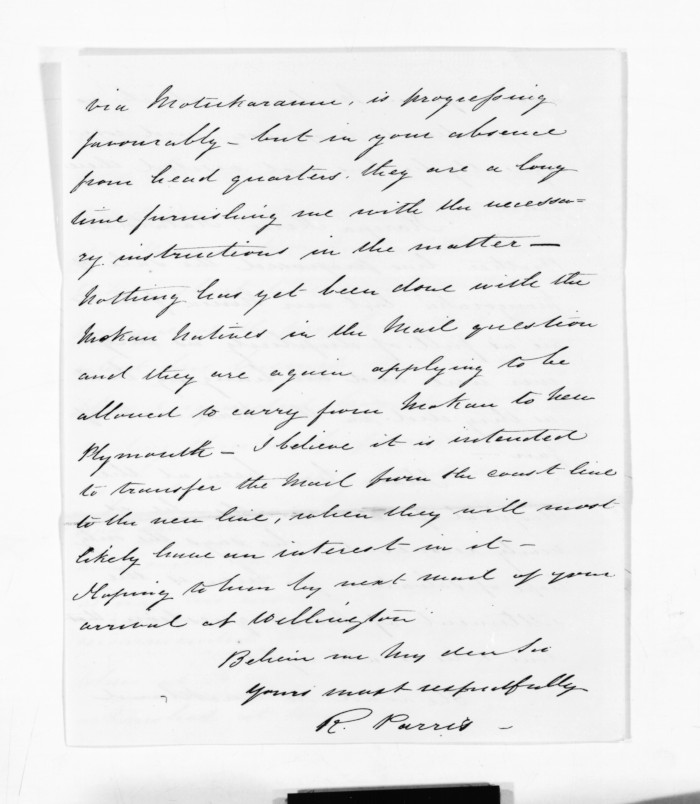 via Motukaramu, is progressing
favourably - but in your absence
from head quarters. they are a long
time furnishing me with the necessa=
ry instructions in the matter -
Nothing has yet been done with the
Mokau Natives in the Mail question
and they are again applying to be
allowed to carry from Mokau to New
Plymouth - I believe it is intended
to transfer the Mail from the coast line
to the new line, when they will most
likely have an interest in it -
Hoping to hear by next mail of your
arrival at Wellington
Believe me My dear Sir
yours most respectfully
R. Parris -